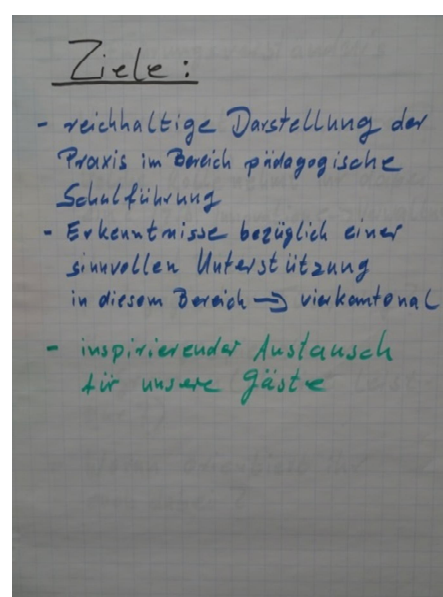 Ziele:
- reichhaltige Darstellung der
Praxis im Bereich pädagogische
Schulführung
- Erkenntnisse bezüglich einer
sinnvollen Unterstützung
in diesem Bereich → vierkantonal
- inspirierender Austausch
für unsere Gäste